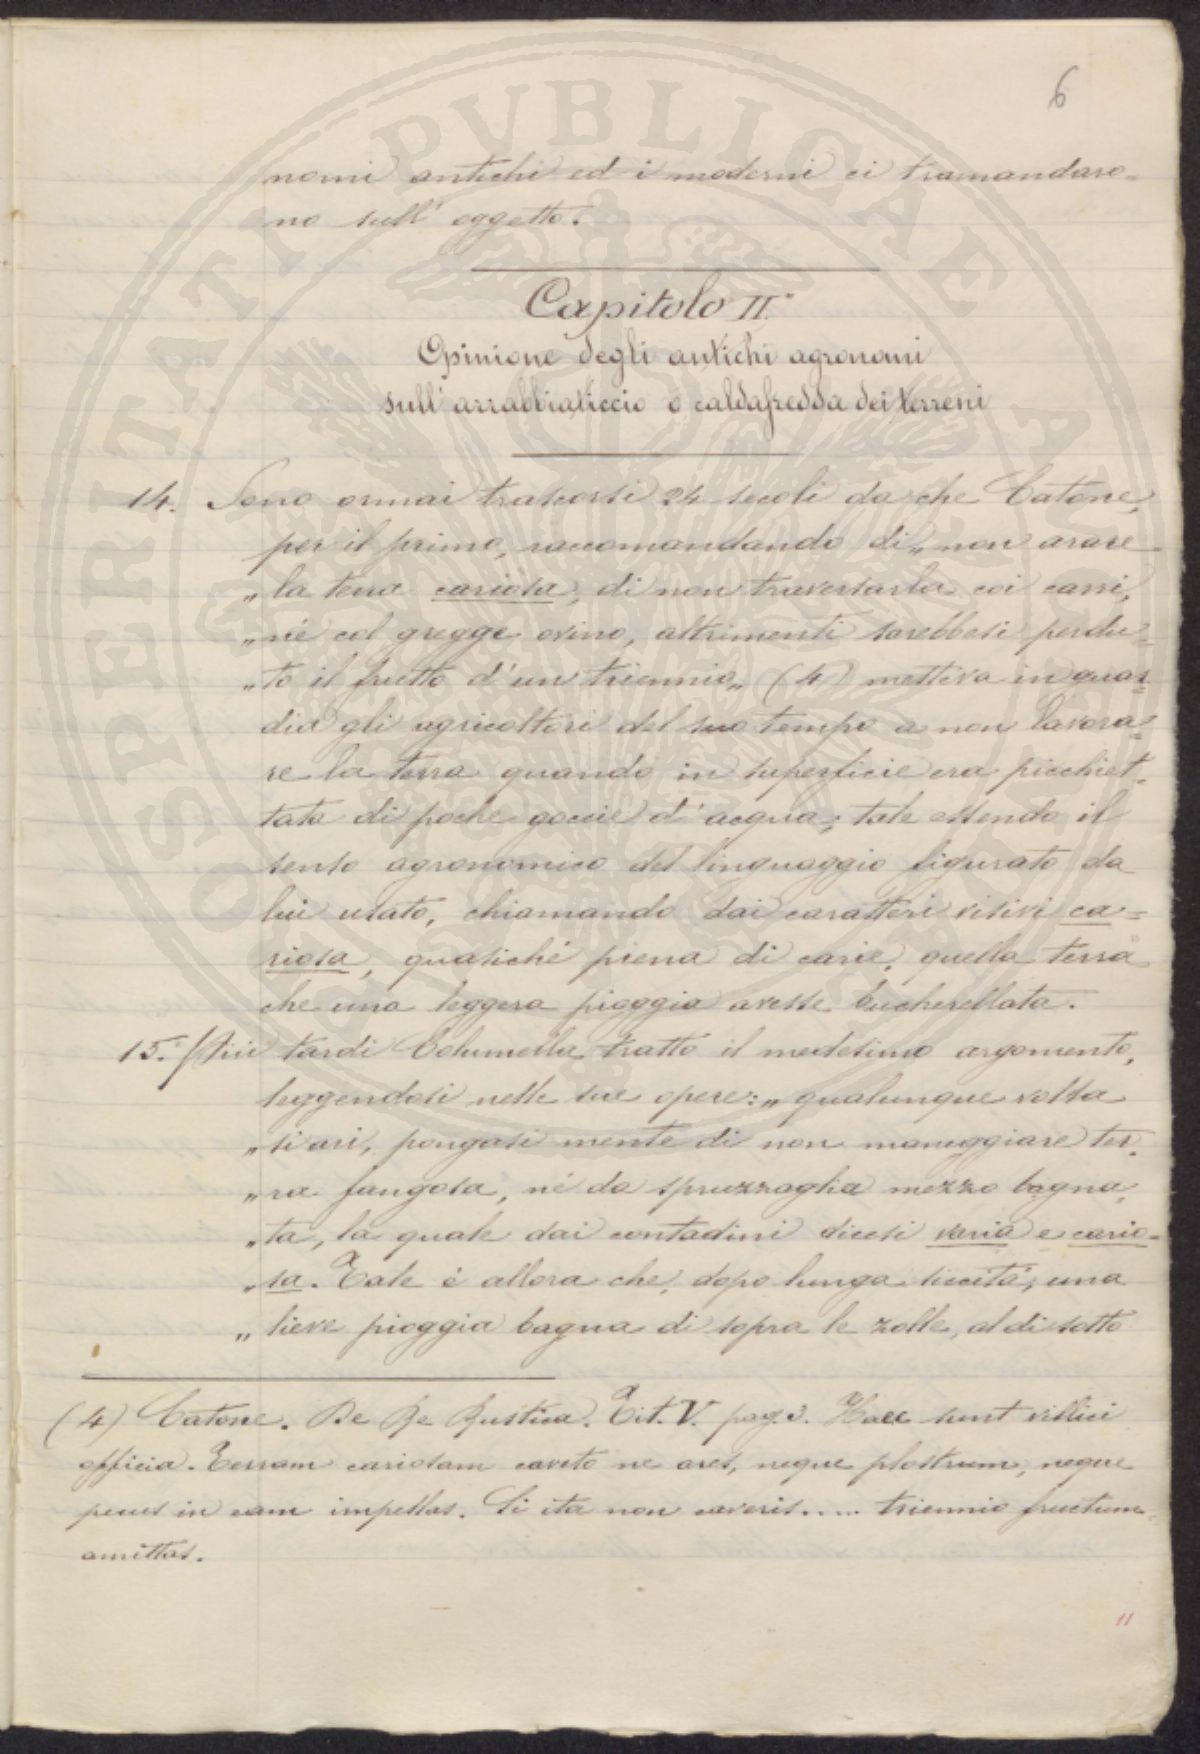 6
nomi antichi ed i moderni ci tramandaro=
no sull' oggetto.
Capitolo II.°
Opinione degli antichi agronomi
sull' arrabbiaticcio o caldafredda dei terreni
14. Sono ormai trascorsi 24 secoli da che Catone,
per il primo, raccomandando di „ non arare
„ la terra cariosa, di non traversarla coi carri,
„ nè col gregge ovino, altrimenti sarebbesi perdu=
„ to il frutto d' un triennio „ (4) metteva in guar=
dia gli agricoltori del suo tempo a non lavora=
re la terra quando in superficie era picchiet=
tata di poche goccie d' acqua; tale essendo il
senso agronomico del linguaggio figurato da
lui usato, chiamando dai caratteri visivi ca=
riosa, quasichè piena di carie, quella terra
che una leggera pioggia avesse bucherellata.
15.° Più tardi Columella trattò il medesimo argomento,
leggendosi nelle sue opere: „ qualunque volta
„ si ari, pongasi mente di non maneggiare ter=
„ ra fangosa, nè da spruzzaglia mezzo bagna=
„ ta, la quale dai contadini dicesi varia e cario=
„ sa. Tale è allora che, dopo lunga siccità, una
„ lieve pioggia bagna di sopra le zolle, al di sotto
(4) Catone. De Re Rustica. Tit. V. pag. 3. Haec sunt villici
officia. Terram cariosam caveto ne ares, neque plostrum, neque
pecus in eam impellas. Si ita non caveris..... triennio fructum
amittas.
11
PROSPERITATI PVBLICAE AVGENDAE